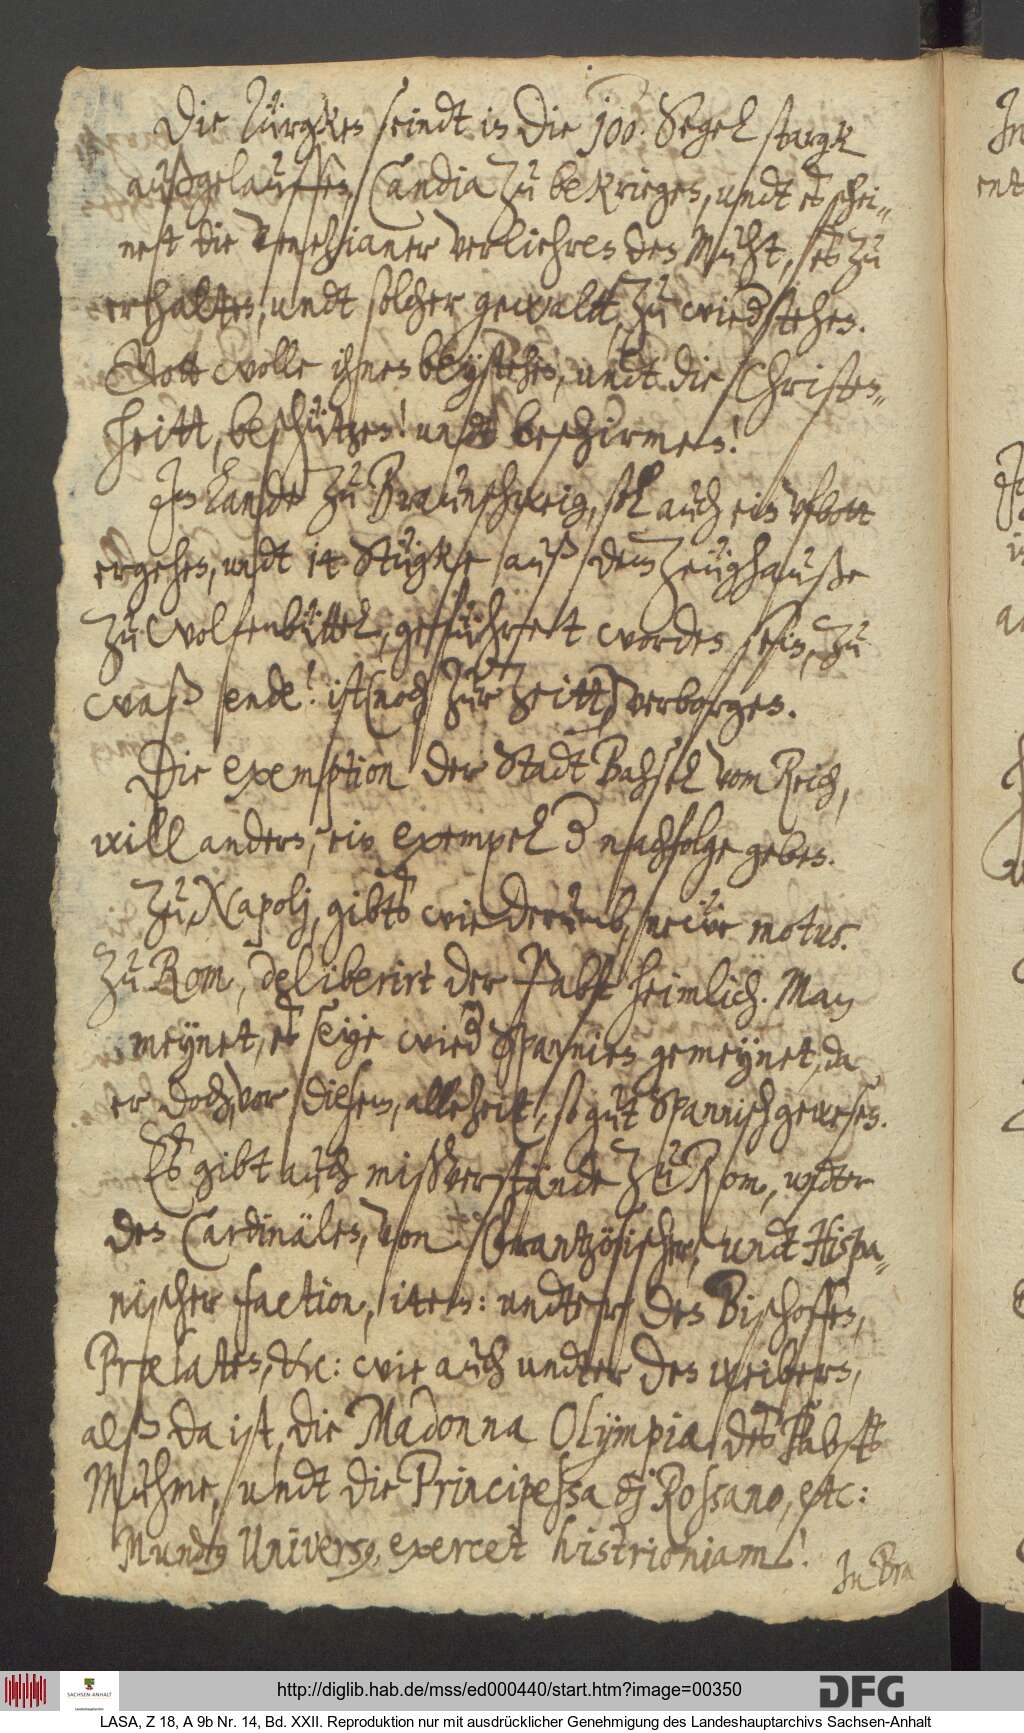 Die Türgken seindt in die 100. Segel stargk
außgelauffen, Candia zu bekriegen, undt es schei-
net die Venetzianer verliehren den Muht, es zu
erhalten, undt solcher gewaltt, zu wiederstehen.
Gott wolle ihnen beystehen, undt die Christen-
heitt, beschützen! undt beschirmen!
Im Lande zu Braunschweig, sol auch ein ufbott
ergehen, undt 14 Stügke auß dem Zeüghauße
zu Wolfenbüttel, geführet worden sein, zu
waß ende! ist (noch zur zeitt) verborgen.
Die exemption der Stadt Bahsel vom Reich,
will andern, ein exempel der nachfolge geben.
Zu Napolj, gibts wiederumb, neüe motus.
Zu Rom, deliberirt der Pabst heimlich. Man
meynet, es seye wieder Spannien gemeynet, da
er doch, vor diesem, allezeit, so gut Spannisch gewesen.
Es gibt auch mißverstände zu Rom, undter
den Cardinälen, von Frantzösischer, undt Hispa-
nischer faction, item: undter den Bischoffen,
Prælaten, etc: wie auch undter den weibern,
alß da ist, die Madonna Olympia, des Pabsts
Muhme, undt die Principessa dj Rossano, etc:
Mundus Universus, exercet histrioniam!
In Bra
In
ent
http://diglib.hab.de/mss/ed000440/start.htm?image=00350
SACHSEN-ANHALT
Landeshauptarchiv
DFG
LASA, Z 18, A 9b Nr. 14, Bd. XXII. Reproduktion nur mit ausdrücklicher Genehmigung des Landeshauptarchivs Sachsen-Anhalt